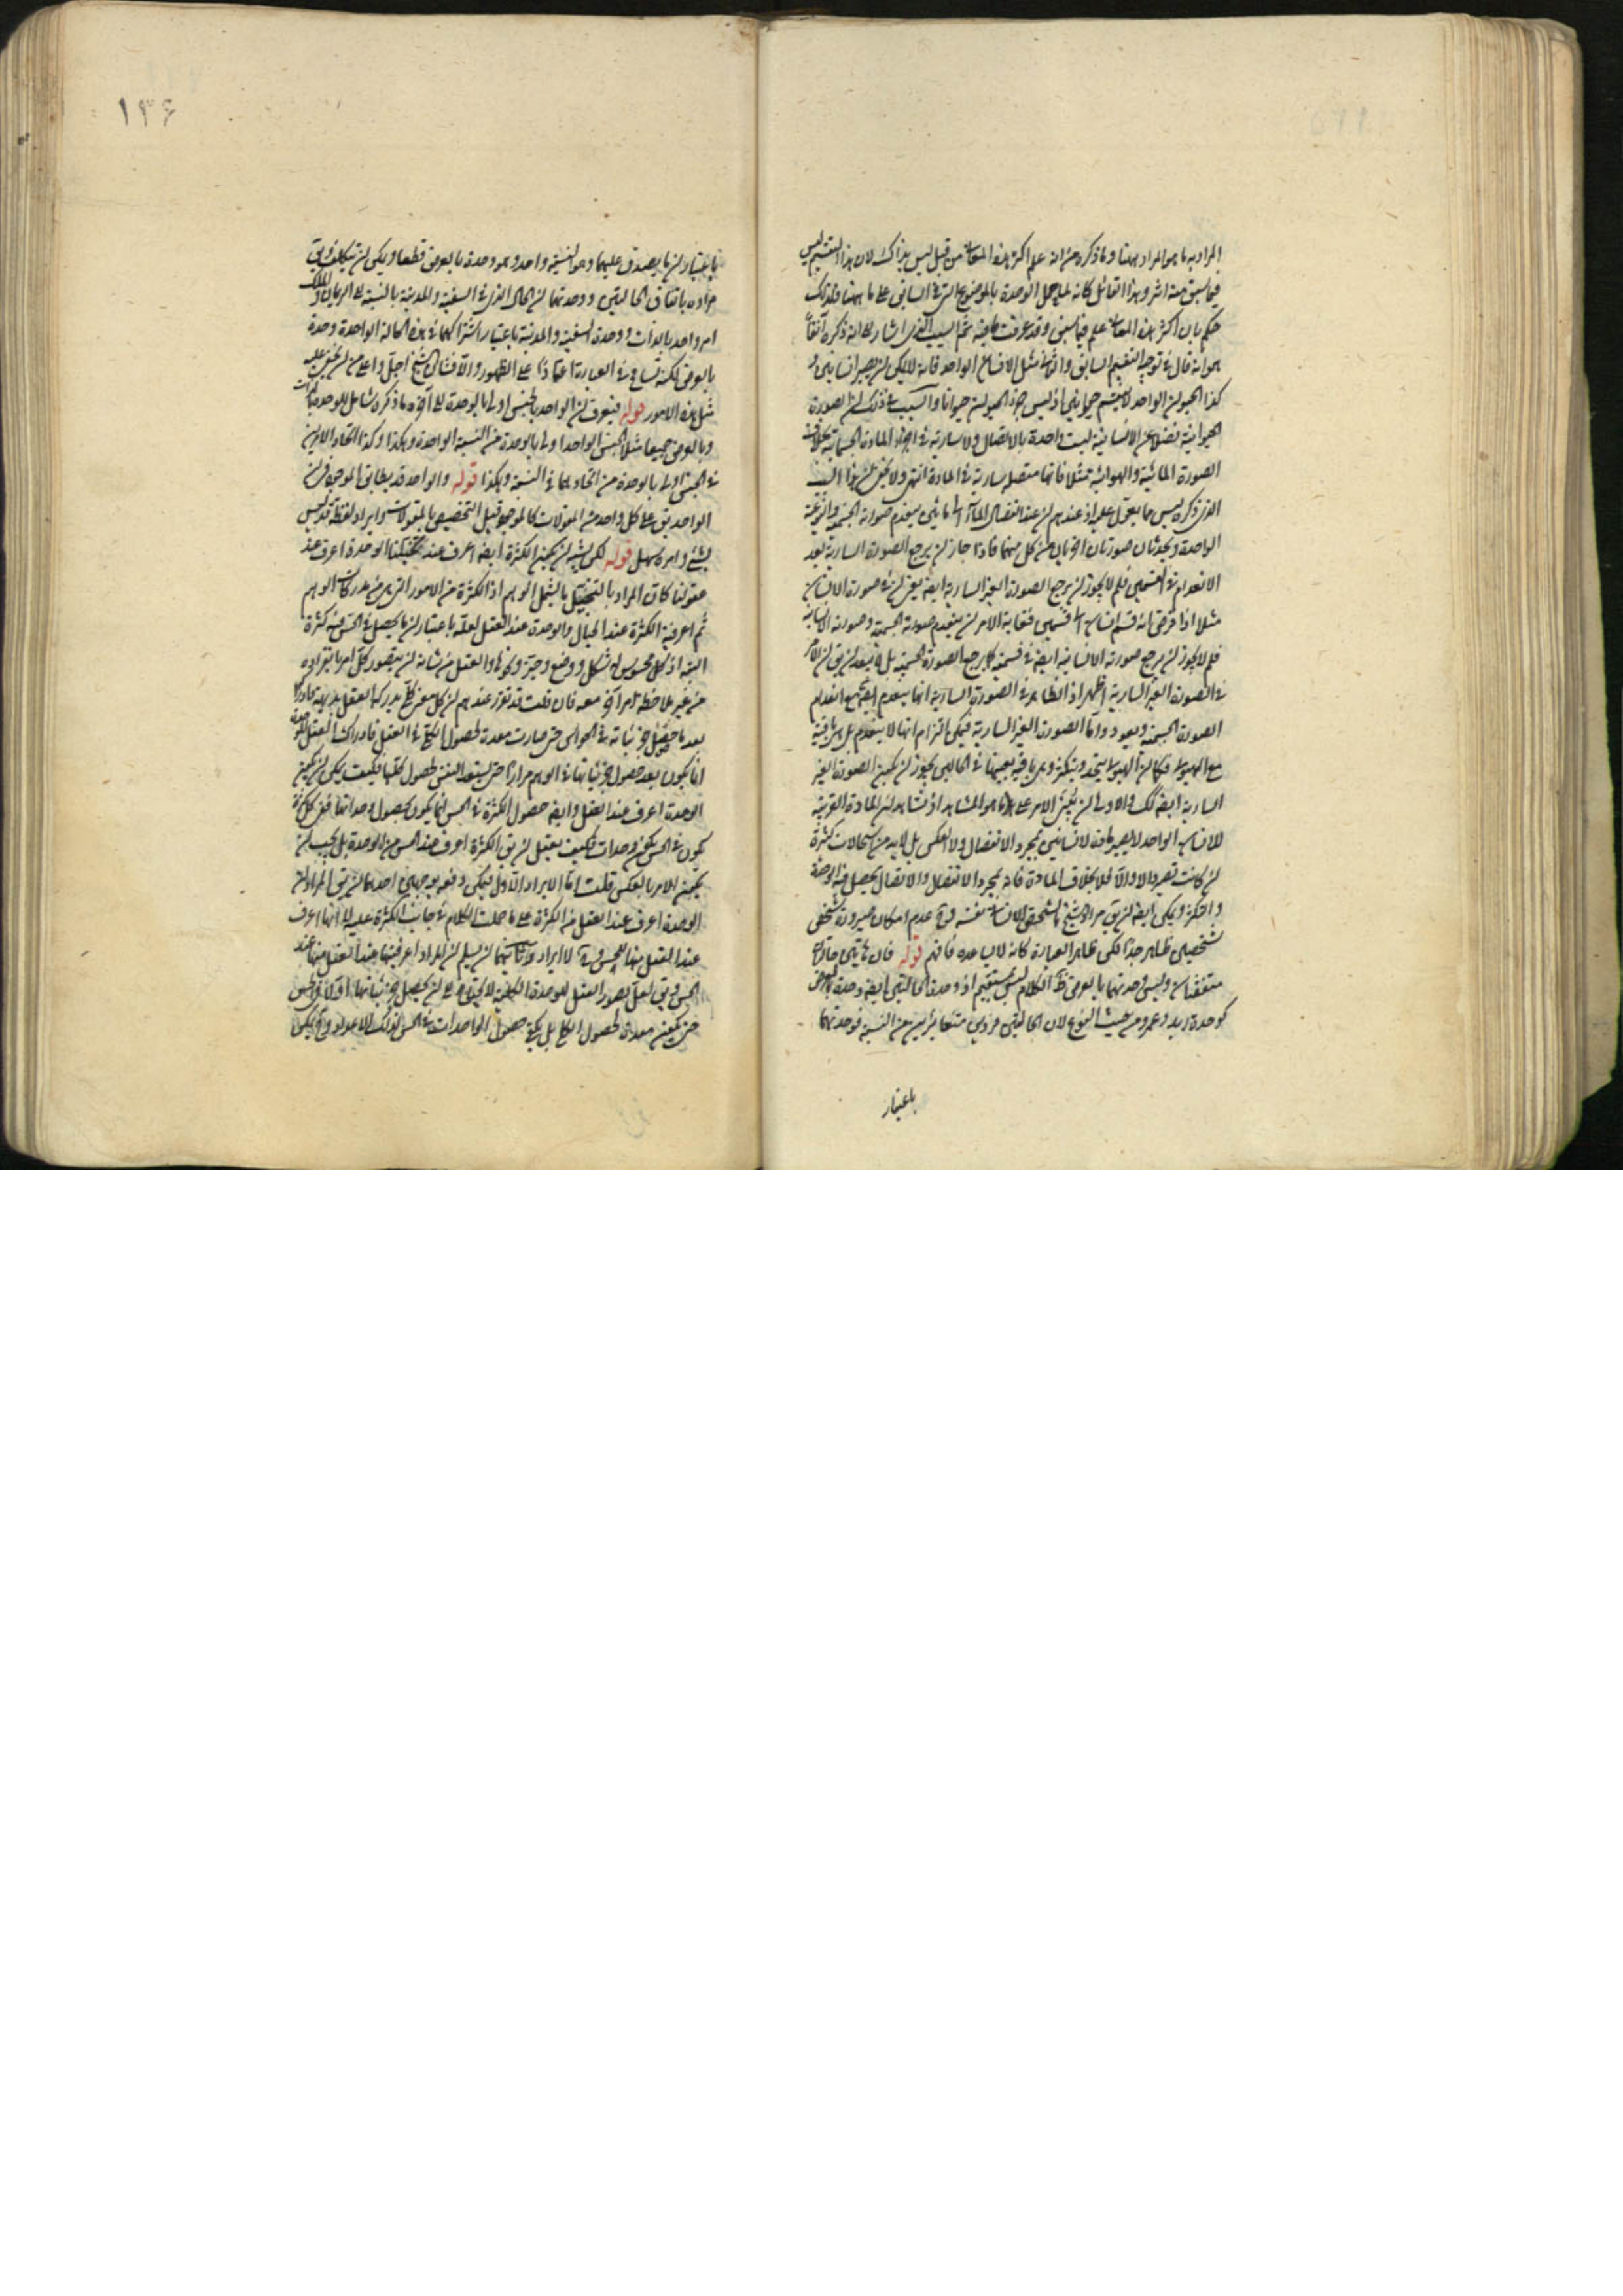 المراد به ما هو المراد ههنا وما ذكره من انه علم اكثر هذه المعانى من قبل ليس بذاك لان هذا التقسيم ليس
فيما سبق منه اثر وهذا القائل كانه لما حمل الوحدة بالموضوع التى فى السابق على ما ههنا فلذلك
حكم بان اكثر هذه المعانى علم فيما سبق وقد عرفت ما فيه ثم السبب الذى اشار الى انه ذكره آنفاً
هو انه قال فى توجيه التقسيم السابق والثانى مثل الانسان الواحد فانه لا يمكن ان يصير انسانين و
كذا الحيوان الواحد لا ينقسم حيوانين اذ ليس جزء الحيوان حيوانا والسبب فى ذلك ان الصورة
الحيوانية فضلا عن الانسانية ليست واحدة بالاتصال ولا سارية فى اجزاء المادة الجسمانية بخلاف
الصورة المائية والهوائية مثلا فانها متصلة سارية فى المادة انتهى ولا يخفى ان هذا السبب
الذى ذكره ليس مما يعول عليه اذ عندهم ان عند انفصال الماء الى مائين ينعدم صورته الجسمية والنوعية
الواحدة ويحدثان صورتان اخريان من كل منهما فاذا جاز ان يرجع الصورة السارية بعد
الانعدام فى القسمين فلم لا يجوز ان يرجع الصورة الغير السارية ايضا يعنى ان فى صورة الانسان
مثلا اذا فرض انه قسم انسان الى قسمين فغاية الامر ان ينعدم صورته الجسمية وصورته الانسانية
فلم لا يجوز ان يرجع صورته الانسانية ايضا فى قسميه كما يرجع الصورة الجسمية بل لا يبعد ان يق ان الامر
فى الصورة الغير السارية اظهر اذ الظاهر فى الصورة السارية انها ينعدم ايضا مع انعدام
الصورة الجسمية ويعود واما الصورة الغير السارية فيمكن التزام انها لا ينعدم بل هى باقية
مع الهيولى فكما ان الهيولى يتحد ويتكثر وهى باقية بعينها فى الحالين يجوز ان يكون الصورة الغير
السارية ايضا كذلك والاولى ان يبنى الامر على ما هو المشاهد اذ نشاهد ان المادة القريبة
للانسان الواحد لا يصير مادة لانسانين بمجرد الانفصال ولا العكس بل لا بد من استحالات كثيرة
ان كانت تصير والا فلا بخلاف المادة فانه بمجرد الانفصال والاتصال يحصل فيه الوحدة
والكثرة ويمكن ايضا ان يق مراد الشيخ بالشخص الانسانى نفسه وحينئذ عدم امكان صيرورة شخص
شخصين ظاهر جدا لكن ظاهر العبارة كانه لا يساعده فافهم قوله فان هاتين حالتان
متفقتان وليس وحدتهما بالعرض ظاهر الكلام ليس بمستقيم اذ وحدة الحالتين ايضا وحدة بالعرض
كوحدة زيد وعمرو من حيث النوع لان الحالتين فردين متغايرين من النسبة فوحدتهما
باعتبار
١٣۶
باعتبار ان ما يصدق عليهما وهو النسبة واحد وهو وحدة بالعرض قطعا ويمكن ان يتكلف ويق
مراده باتفاق الحالتين ووحدتهما ان الحال الذى فى السفينة والمدينة بالنسبة الى الربان والملك
امر واحد بالذات ووحدة السفينة والمدينة باعتبار اشتراكهما فى هذه الحالة الواحدة وحدة
بالعرض لكنه تسامح فى العبارة اعتمادًا على الظهور والا فشان الشيخ اجل واعلى من ان يخفى عليه
مثل هذه الامور قوله فيعرف ان الواحد بالجنس اولى بالوحدة الى آخره ما ذكره شامل للوحدة بالذات
وبالعرض جميعا مثلا الجنس الواحد اولى بالوحدة من النسبة الواحدة وهكذا وكذا اتحاد الامرين
فى الجنس اولى بالوحدة من اتحادهما فى النسبة وهكذا قوله والواحد قد يطابق الموجود فى ان
الواحد يق على كل واحد من المقولات كالموجود قيل التخصيص بالمقولات وايراد لفظة قد ليس
بشئ وامره سهل قوله لكن يشبه ان يكون الكثرة ايضا اعرف عند تخيلنا الوحدة اعرف عند
عقولنا كان المراد بالتخيل ما يشمل الوهم اذ الكثرة من الامور التى هى من مدركات الوهم
ثم اعرفية الكثرة عند الخيال والوحدة عند العقل لعله باعتبار ان ما يحصل فى الحس فيه كثرة
البتة اذ كل محسوس له شكل ووضع وحيز وكونها والعقل من شانه ان يتصور كل امر بانفراده
من غير ملاحظة امر آخر معه فان قلت قد تقرر عندهم ان كل معنى كلى يدركه العقل بديهة فادراكه
بعد ما حصل جزئياته فى الحواس حتى صارت معدة لحصول الكلى فى العقل فادراك العقل للوحدة
انما يكون بعد حصول جزئياتها فى الوهم مرارًا حتى يستعد النفس لحصول كليها فكيف يمكن ان يكون
الوحدة اعرف عند العقل وايضا حصول الكثرة فى الحس انما يكون بحصول وحداتها ففى كل كثرة
يكون فى الحس يكون وحدات فكيف يعقل ان يق الكثرة اعرف عند الحس من الوحدة بل يجب ان
يكون الامر بالعكس قلت اما الايراد الاول فيمكن دفعه بوجهين احدهما ان يق المراد ان
الوحدة اعرف عند العقل من الكثرة على ما حملت الكلام فى جانب الكثرة عليه لا انها اعرف
عند العقل منها للحس وحينئذ لا ايراد وثانيهما ان يسلم ان المراد اعرفيتها عند العقل منها عند
الحس ويق لعل تصور العقل للوحدة الكلية لا يتوقف على ان يحصل جزئياتها اولا فى الحس
حتى يكون معدة لحصول الكلى بل يكفى حصول الواحدات فى الحس لذلك الاعداد وحينئذ يمكن